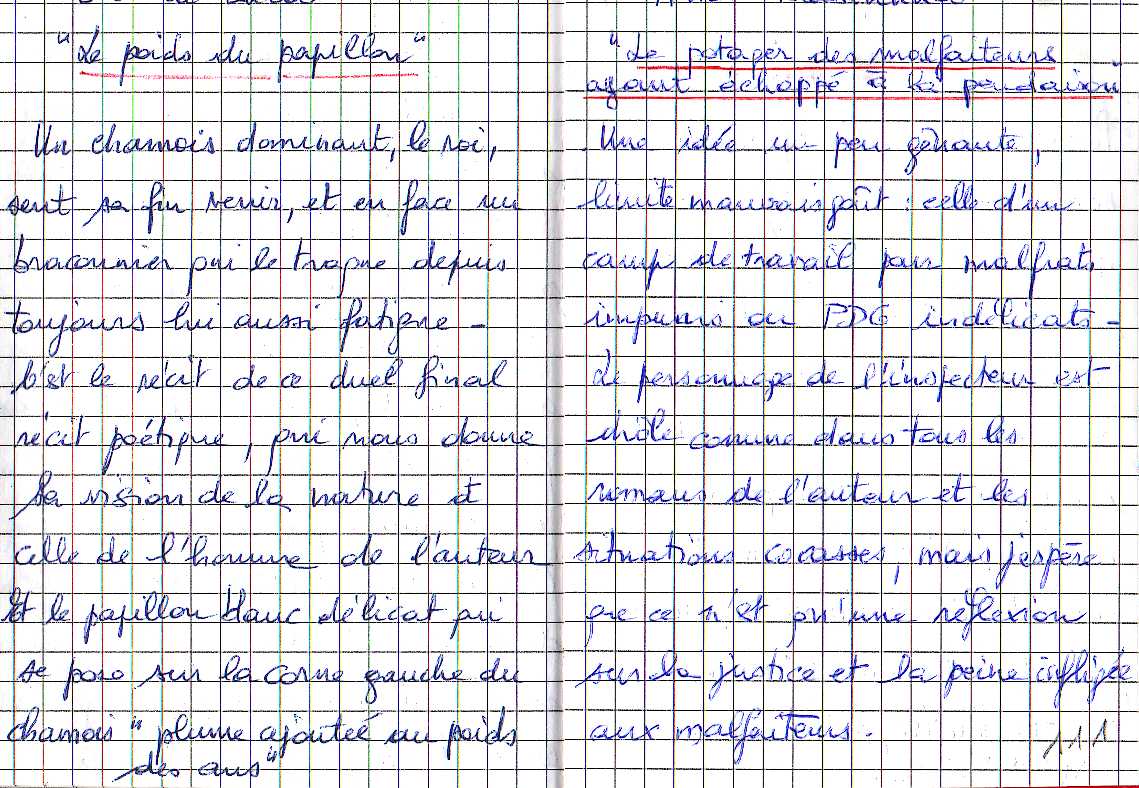 "Le poids du papillon"
Un chamois dominant, le roi,
sent sa fin venir, et en face un
braconnier qui le traque depuis
toujours lui aussi fatigué -
C'est le récit de ce duel final
récit poétique, qui nous donne
sa vision de la nature et
celle de l'homme de l'auteur
Et le papillon blanc délicat qui
se pose sur la corne gauche du
chamois "plume ajoutée au poids
des ans"
"Le potager des malfaiteurs
ayant échappé à la pendaison"
Une idée un peu gênante,
limite mauvais goût : celle d'un
camp de travail pour malfrats
impunis ou PDG indélicats -
Le personnage de l'inspecteur est
drôle comme dans tous les
romans de l'auteur et les
situations cocasses, mais j'espère
que ce n'est qu'une réflexion
sur la justice et la peine infligée
aux malfaiteurs.
111